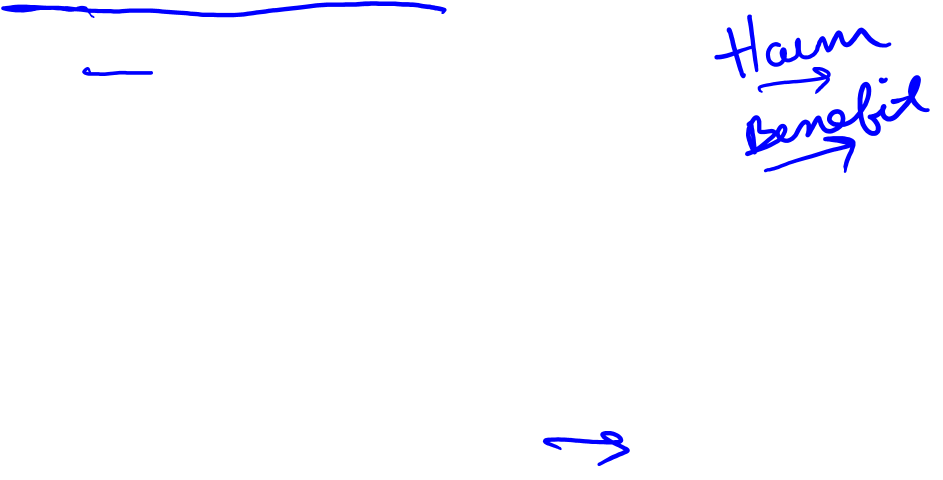 Harm
Benefit